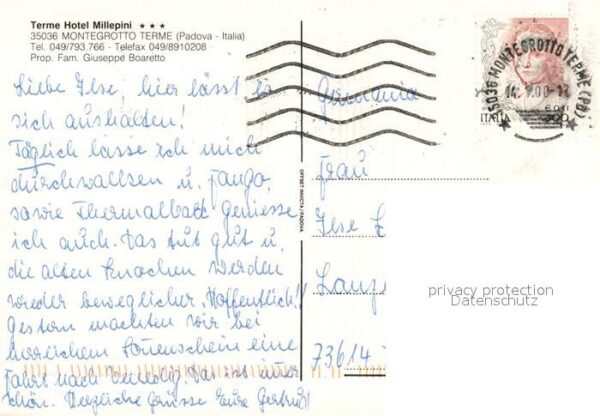 Terme Hotel Millepini ★ ★ ★
35036 MONTEGROTTO TERME (Padova - Italia)
Tel. 049/793.766 - Telefax 049/8910208
Prop. Fam. Giuseppe Boaretto
Liebe Ilse, hier lässt es
sich aushalten!
Täglich lasse ich mich
durchwalken u. Fango,
sowie Thermalbad geniesse
ich auch. Das tut gut u.
die alten Knochen werden
wieder beweglicher. Hoffentlich!!
Gestern machten wir bei
herrlichem Sonnenschein eine
Fahrt nach Venedig. Das ist immer
schön. Herzliche Grüsse Eure Gertrud
OFFSET INVICTA/PADOVA
35036 MONTEGROTTO TERME (PD)
ITALIA
800
Germania
Frau
Ilse
73614
privacy protection
Datenschutz